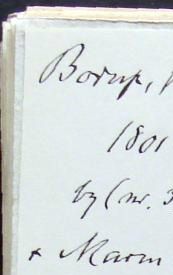 Borup, 
1801
by (nr. 3
+ Marm